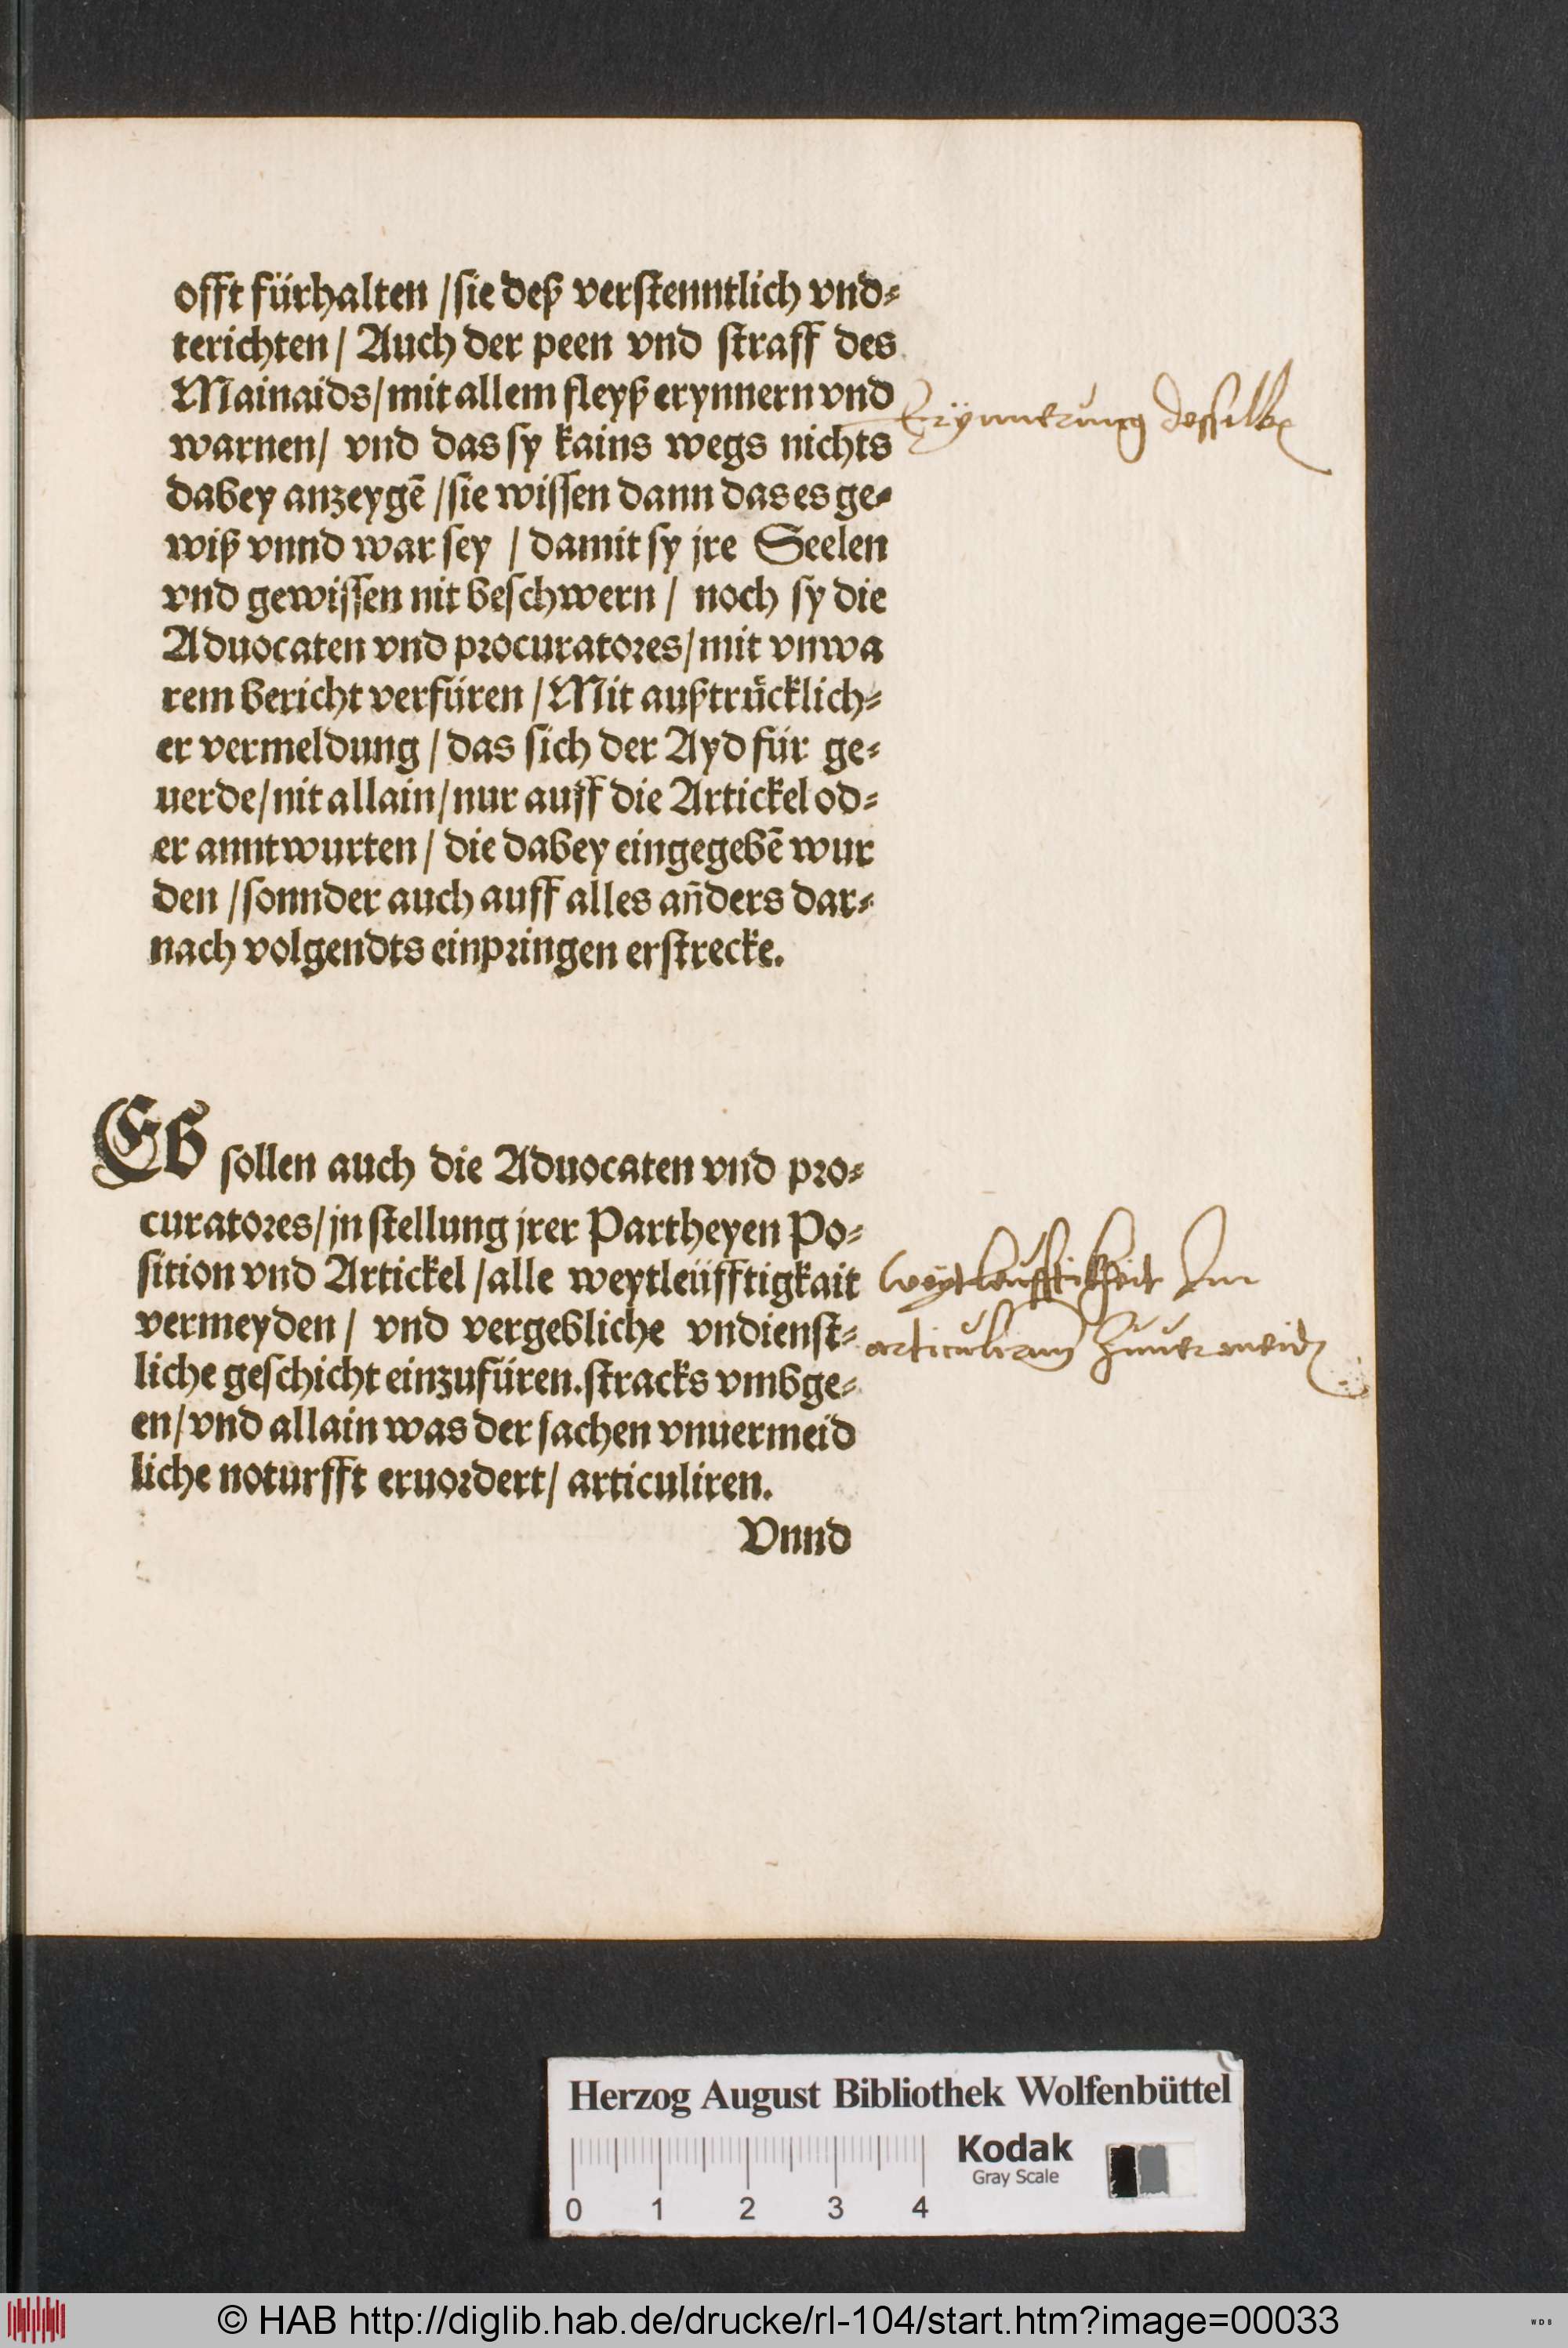 offt fürhalten /sie deß verstenntlich vnd=
terichten/ Auch der peen vnd straff des
Mainaids/mit allem fleyß erynnern vnd
Erÿnnerung desselben
warnen/ vnd das sy kains wegs nichts
dabey anzeygē /sie wissen dann das es ge=
wiß vnnd war sey / damit sy jre Seelen
vnd gewissen nit beschwern / noch sy die
Aduocaten vnd procuratores/mit vnwa
rem bericht verfüren /Mit außtrücklich=
er vermeldung / das sich der Ayd für ge=
uerde/nit allain/nur auff die Artickel od=
er anntwurten / die dabey eingegebē wur
den /sonnder auch auff alles an̄ders dar=
nach volgendts einpringen erstrecke.
Es sollen auch die Aduocaten vnd pro=
curatores/jn stellung jrer Partheyen Po=
sition vnd Artickel /alle weytleüfftigkait
weÿtleufftikheit Im
vermeyden / vnd vergebliche vndienst=
articulirn Zuuermeid
liche geschicht einzufüren.stracks vmbge=
en/vnd allain was der sachen vnuermeid
liche noturfft eruordert/ articuliren.
Vnnd
Herzog August Bibliothek Wolfenbüttel
Kodak
Gray Scale
0 1 2 3 4
© HAB http://diglib.hab.de/drucke/rl-104/start.htm?image=00033
WDB